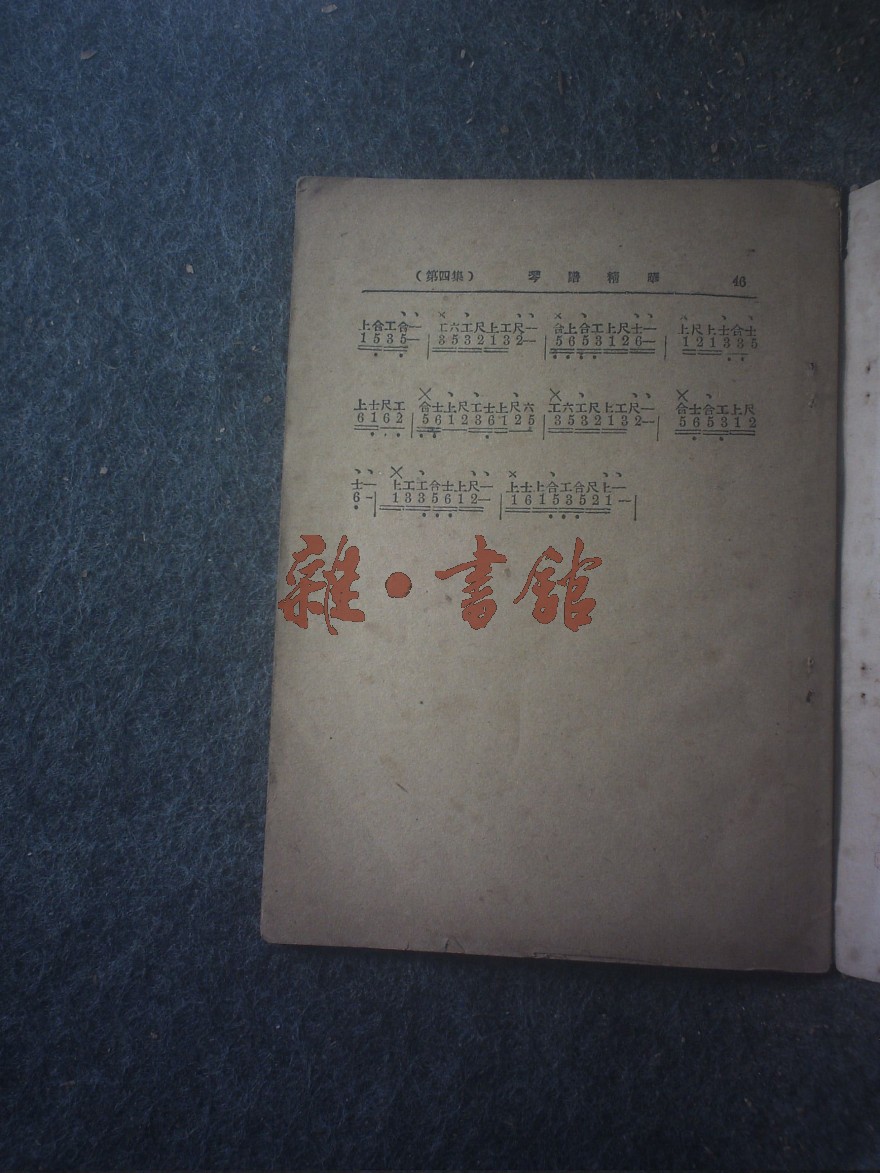 （第四集） 琴譜精華 46
上合工合一 工六工尺上工尺一 合上合工上尺士一 上尺上士合士
1 5 3 5— 3 5 3 2 1 3 2— 5 6 5 3 1 2 6— 1 2 1 3 3 5
上士尺工 合士上尺工士上尺六 工六工尺上工尺一 合士合工上尺
6 1 6 2 5 6 1 2 3 6 1 2 5 3 5 3 2 1 3 2— 5 6 5 3 1 2
士一 上工工合士上尺一 上士上合工合尺上一
6— 1 3 3 5 6 1 2— 1 6 1 5 3 5 2 1—
雜·書館